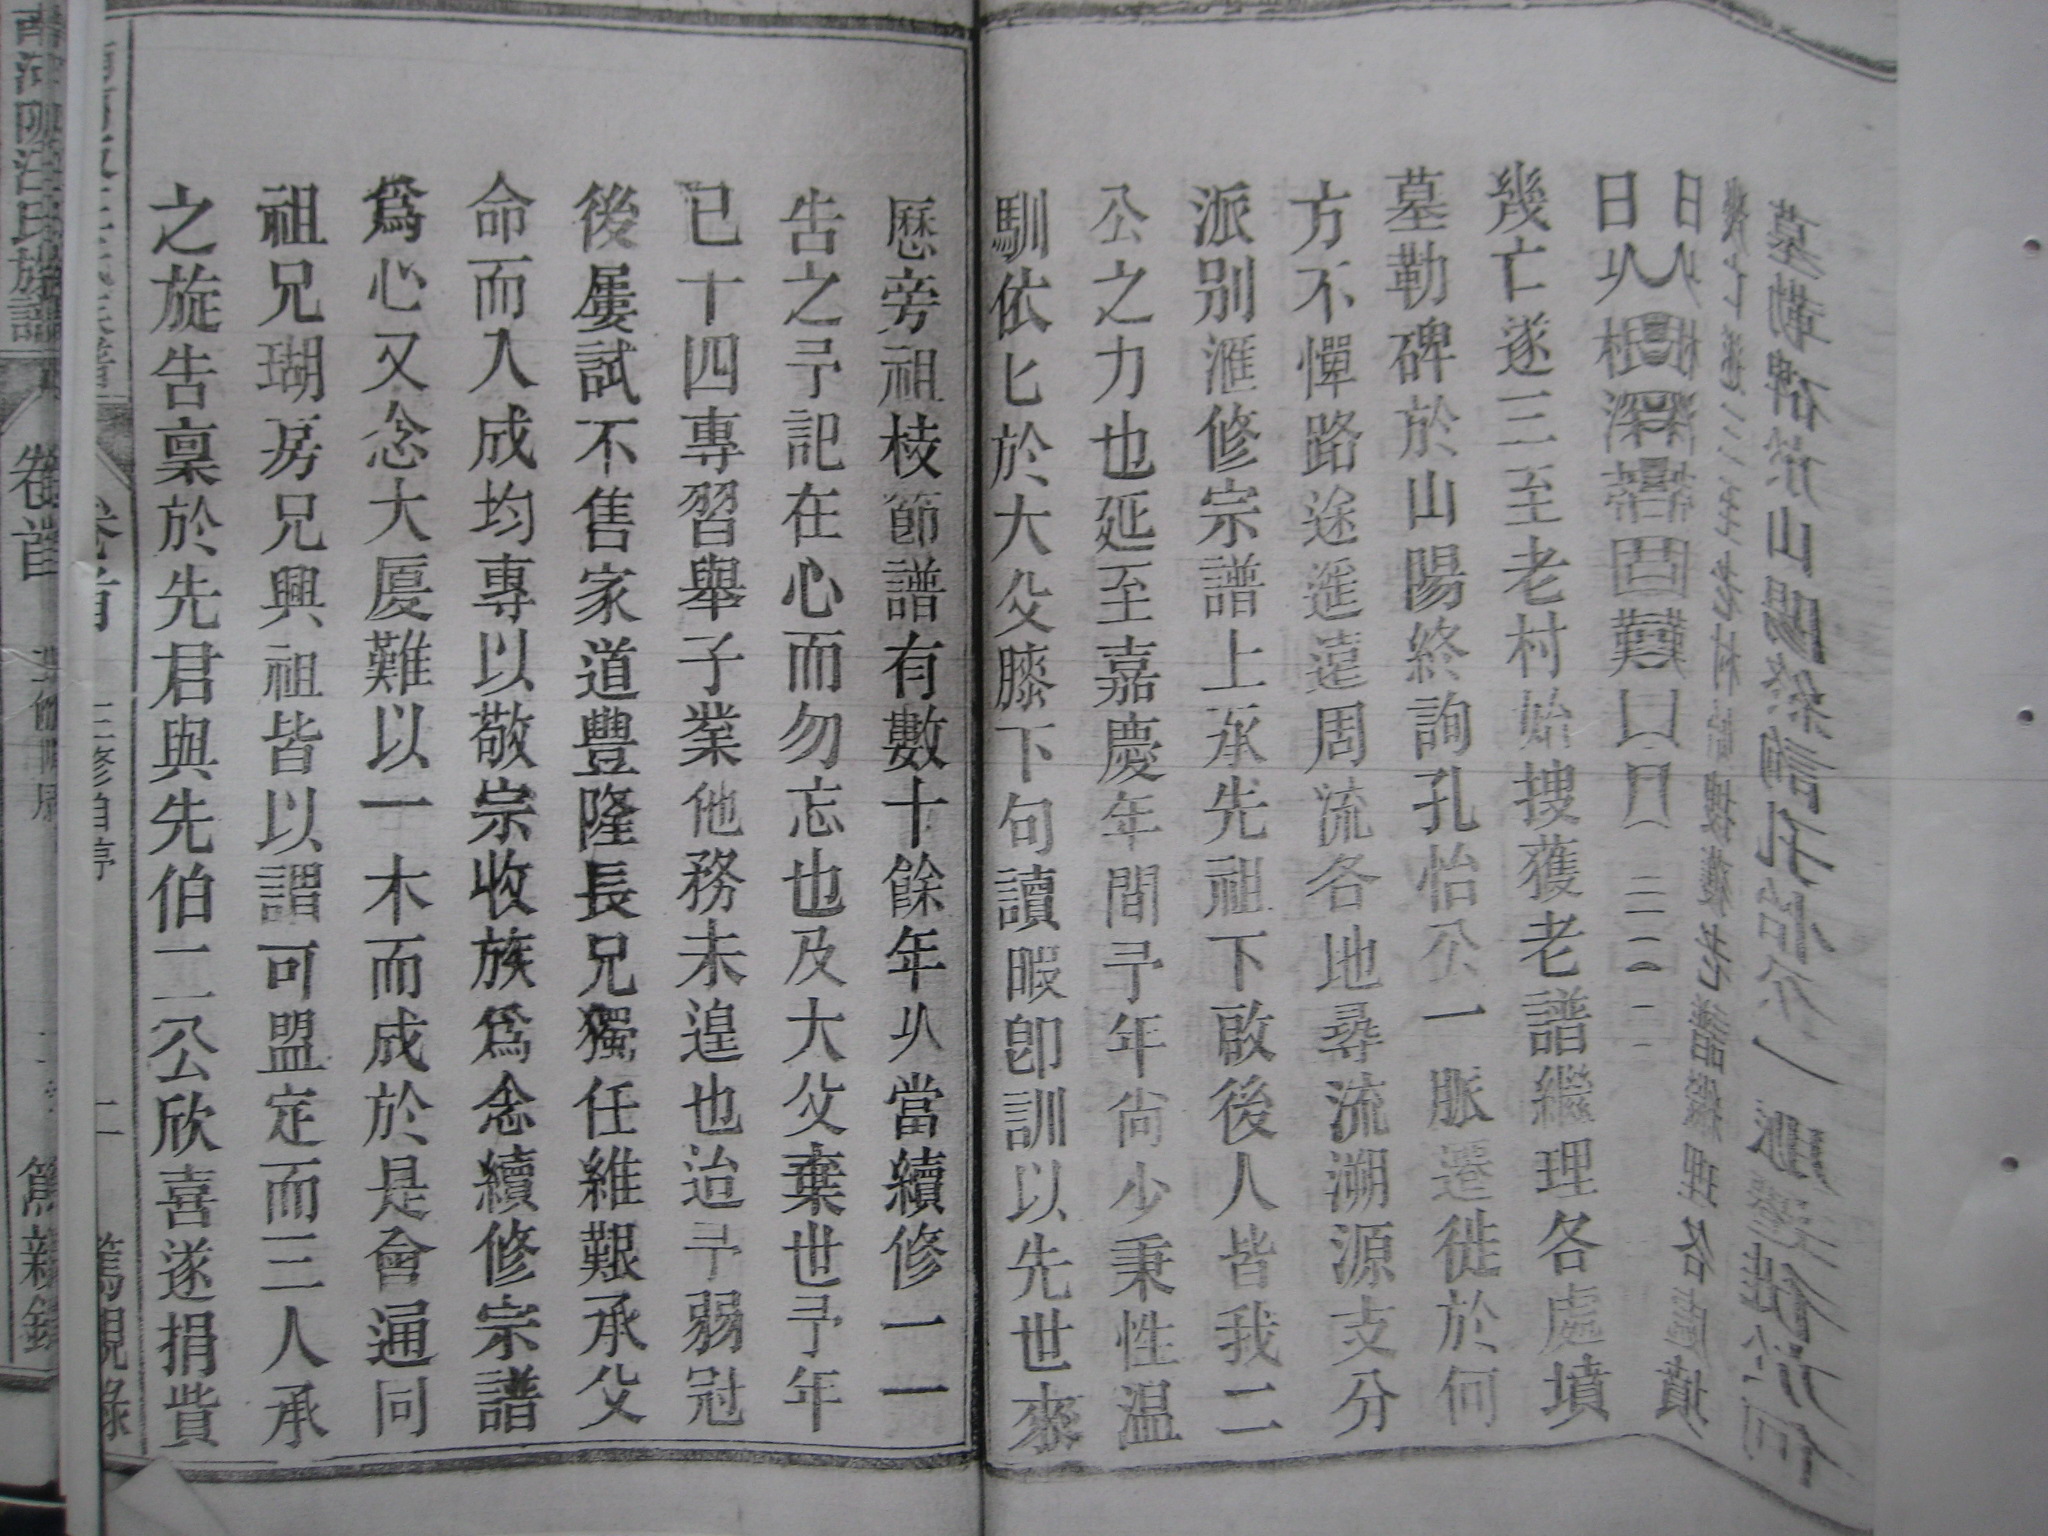 日以根深蒂固難
幾亡遂三至老村始搜獲老譜繼理各處墳
墓勒碑於山陽終詢孔怡公一脈遷徙於何
方不憚路途遥遠周流各地尋流溯源支分
派别滙修宗譜上承先祖下啟後人皆我二
公之力也延至嘉慶年間予年尚少秉性温
馴依匕於大父膝下句讀暇即訓以先世來
歷旁祖枝節譜有數十餘年以當續修一一
告之予記在心而勿忘也及大父棄世予年
已十四專習舉子業他務未遑也迨予弱冠
後屢試不售家道豐隆長兄獨任維艱承父
命而入成均專以敬宗收族爲念續修宗譜
爲心又念大厦難以一木而成於是會通同
祖兄瑚房兄興祖皆以謂可盟定而三人承
之旋告禀於先君與先伯二公欣喜遂捐貲
卷首
二
篤親錄
氏族譜
卷首